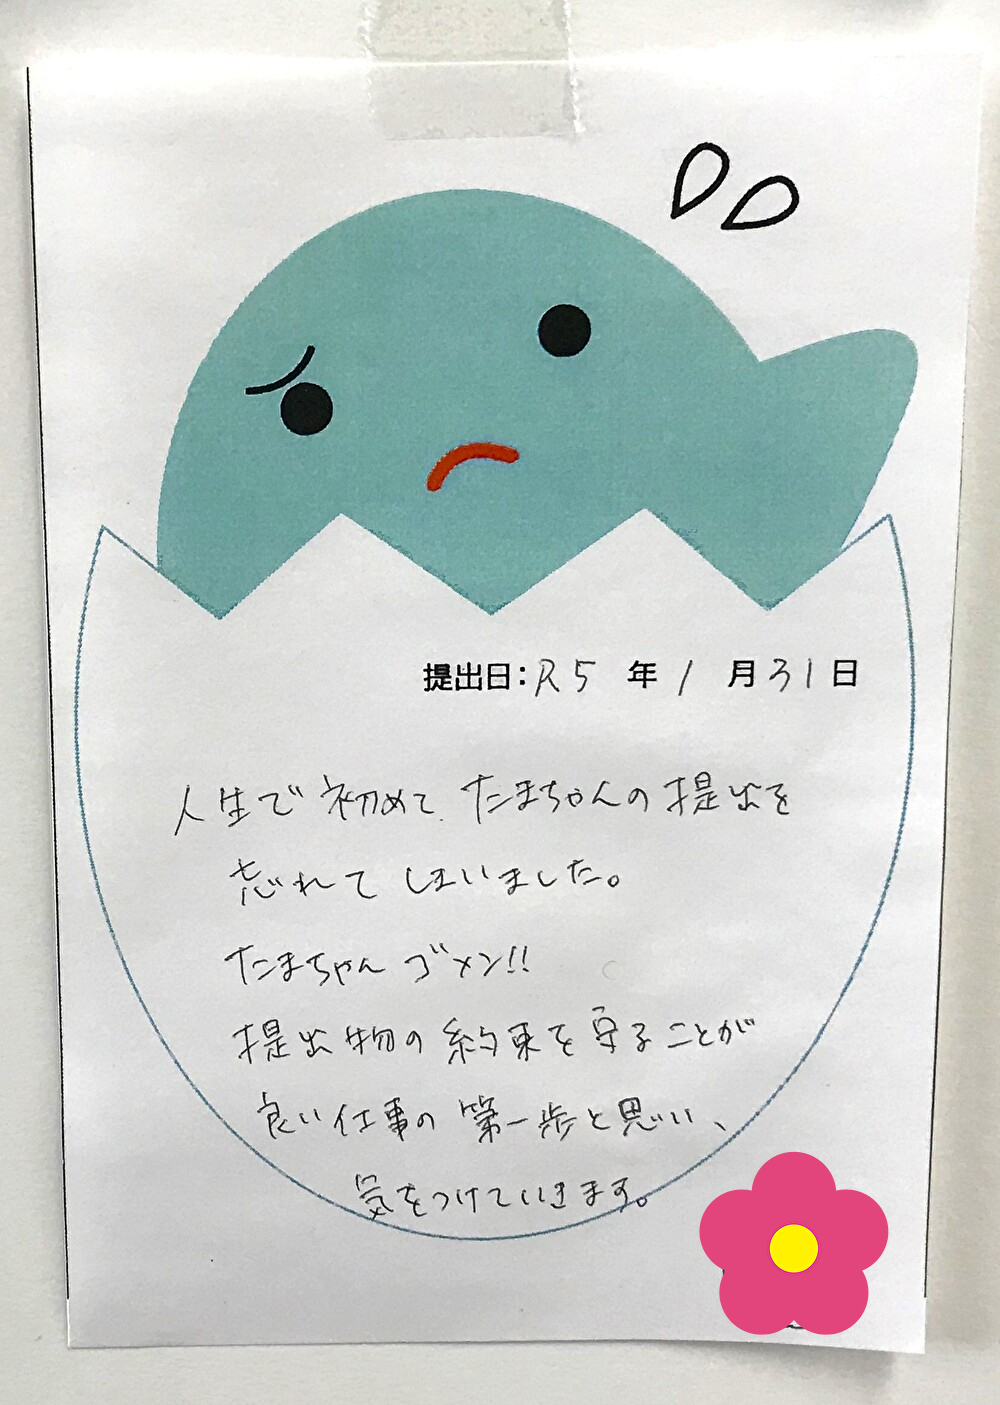 提出日：R5 年 1 月 31 日
人生で初めて、たまちゃんの提出を
忘れてしまいました。
たまちゃんゴメン!!
提出物の約束を守ることが
良い仕事の第一歩と思い、
気をつけていきます。